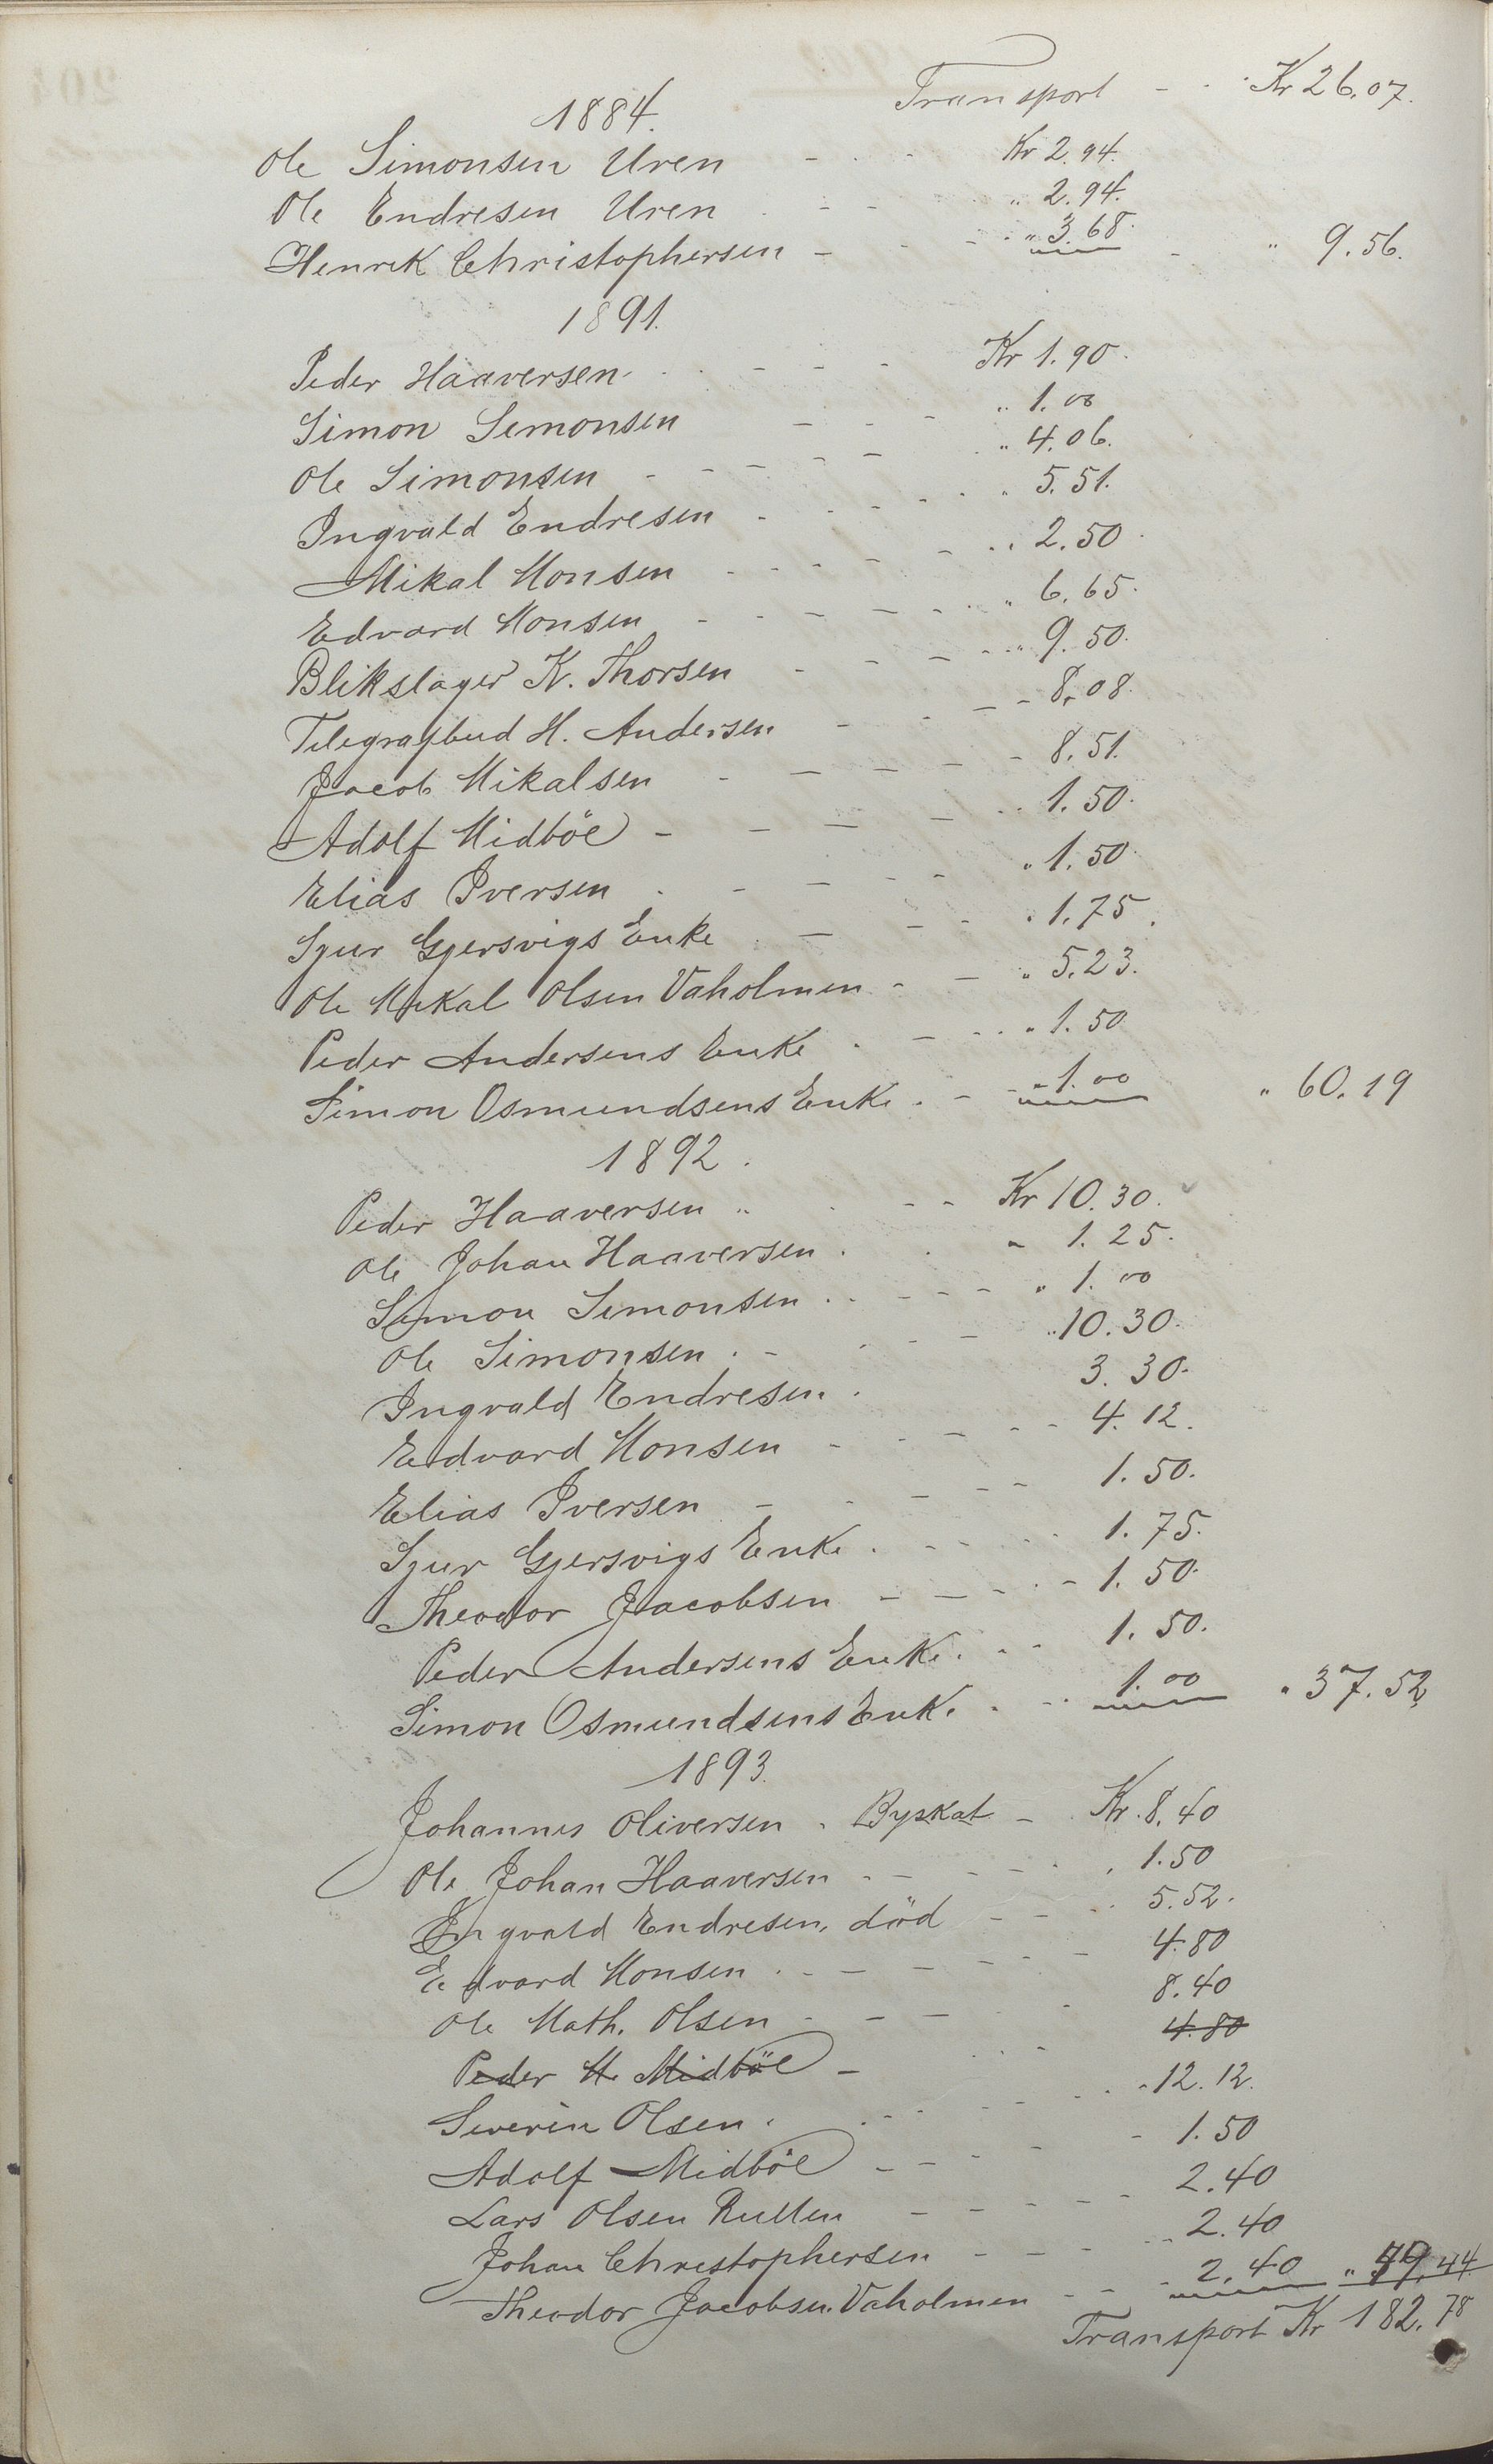 Transport - - Kr 26.07.
1884.
Ole Simonsen Uren - - - Kr 2.94.
Ole Endresen Uren - - - " 2.94.
Henrik Christophersen - - - " 3.68. - " 9.56.
1891.
Peder Haaversen - - - Kr 1.90.
Simon Simonsen - - - " 1.00
Ole Simonsen - - - " 4.06.
Ingvald Endresen - - - " 5.51.
Mikal Monsen - - - " 2.50
Edvard Monsen - - - " 6.65.
Blikslager K. Thorsen - - - " 9.50.
Telegrafbud H. Andersen - - - 8.08.
Jacob Mikalsen - - - 8.51.
Adolf Midböe - - - 1.50.
Elias Iversen - - - " 1.50.
Sjur Gjersvigs Enke - - - " 1.75.
Ole Mikal Olsen Vaholmen - - " 5.23.
Peder Andersens Enke - - - " 1.50
Simon Osmundsens Enke - - " 1.00 " 60.19
1892.
Peder Haaversen - - - Kr 10.30.
Ole Johan Haaversen . . " 1.25.
Simon Simonsen - - - " 1.00
Ole Simonsen - - - " 10.30.
Ingvald Endresen . 3.30.
Edvard Monsen - - - 4.12.
Elias Iversen - - - 1.50.
Sjur Gjersvigs Enke - - - 1.75.
Theodor Jacobsen - - - 1.50.
Peder Andersens Enke - - - 1.50.
Simon Osmundsens Enke - - 1.00 " 37.52
1893.
Johannes Oliversen . Byskat - Kr. 8.40
Ole Johan Haaversen - - - 1.50
Ingvald Endresen, död - - - 5.52.
Edvard Monsen - - - 4.80
Ole Math. Olsen - - - 8.40
Peder M. Midböe - - - 4.80
Severin Olsen - - - 12.12.
Adolf Midböe - - - 1.50
Lars Olsen Rullen - - - 2.40
Johan Christophersen - - - 2.40
Theodor Jacobsen Vaholmen - - - 2.40 " 49.44
Transport Kr 182.78